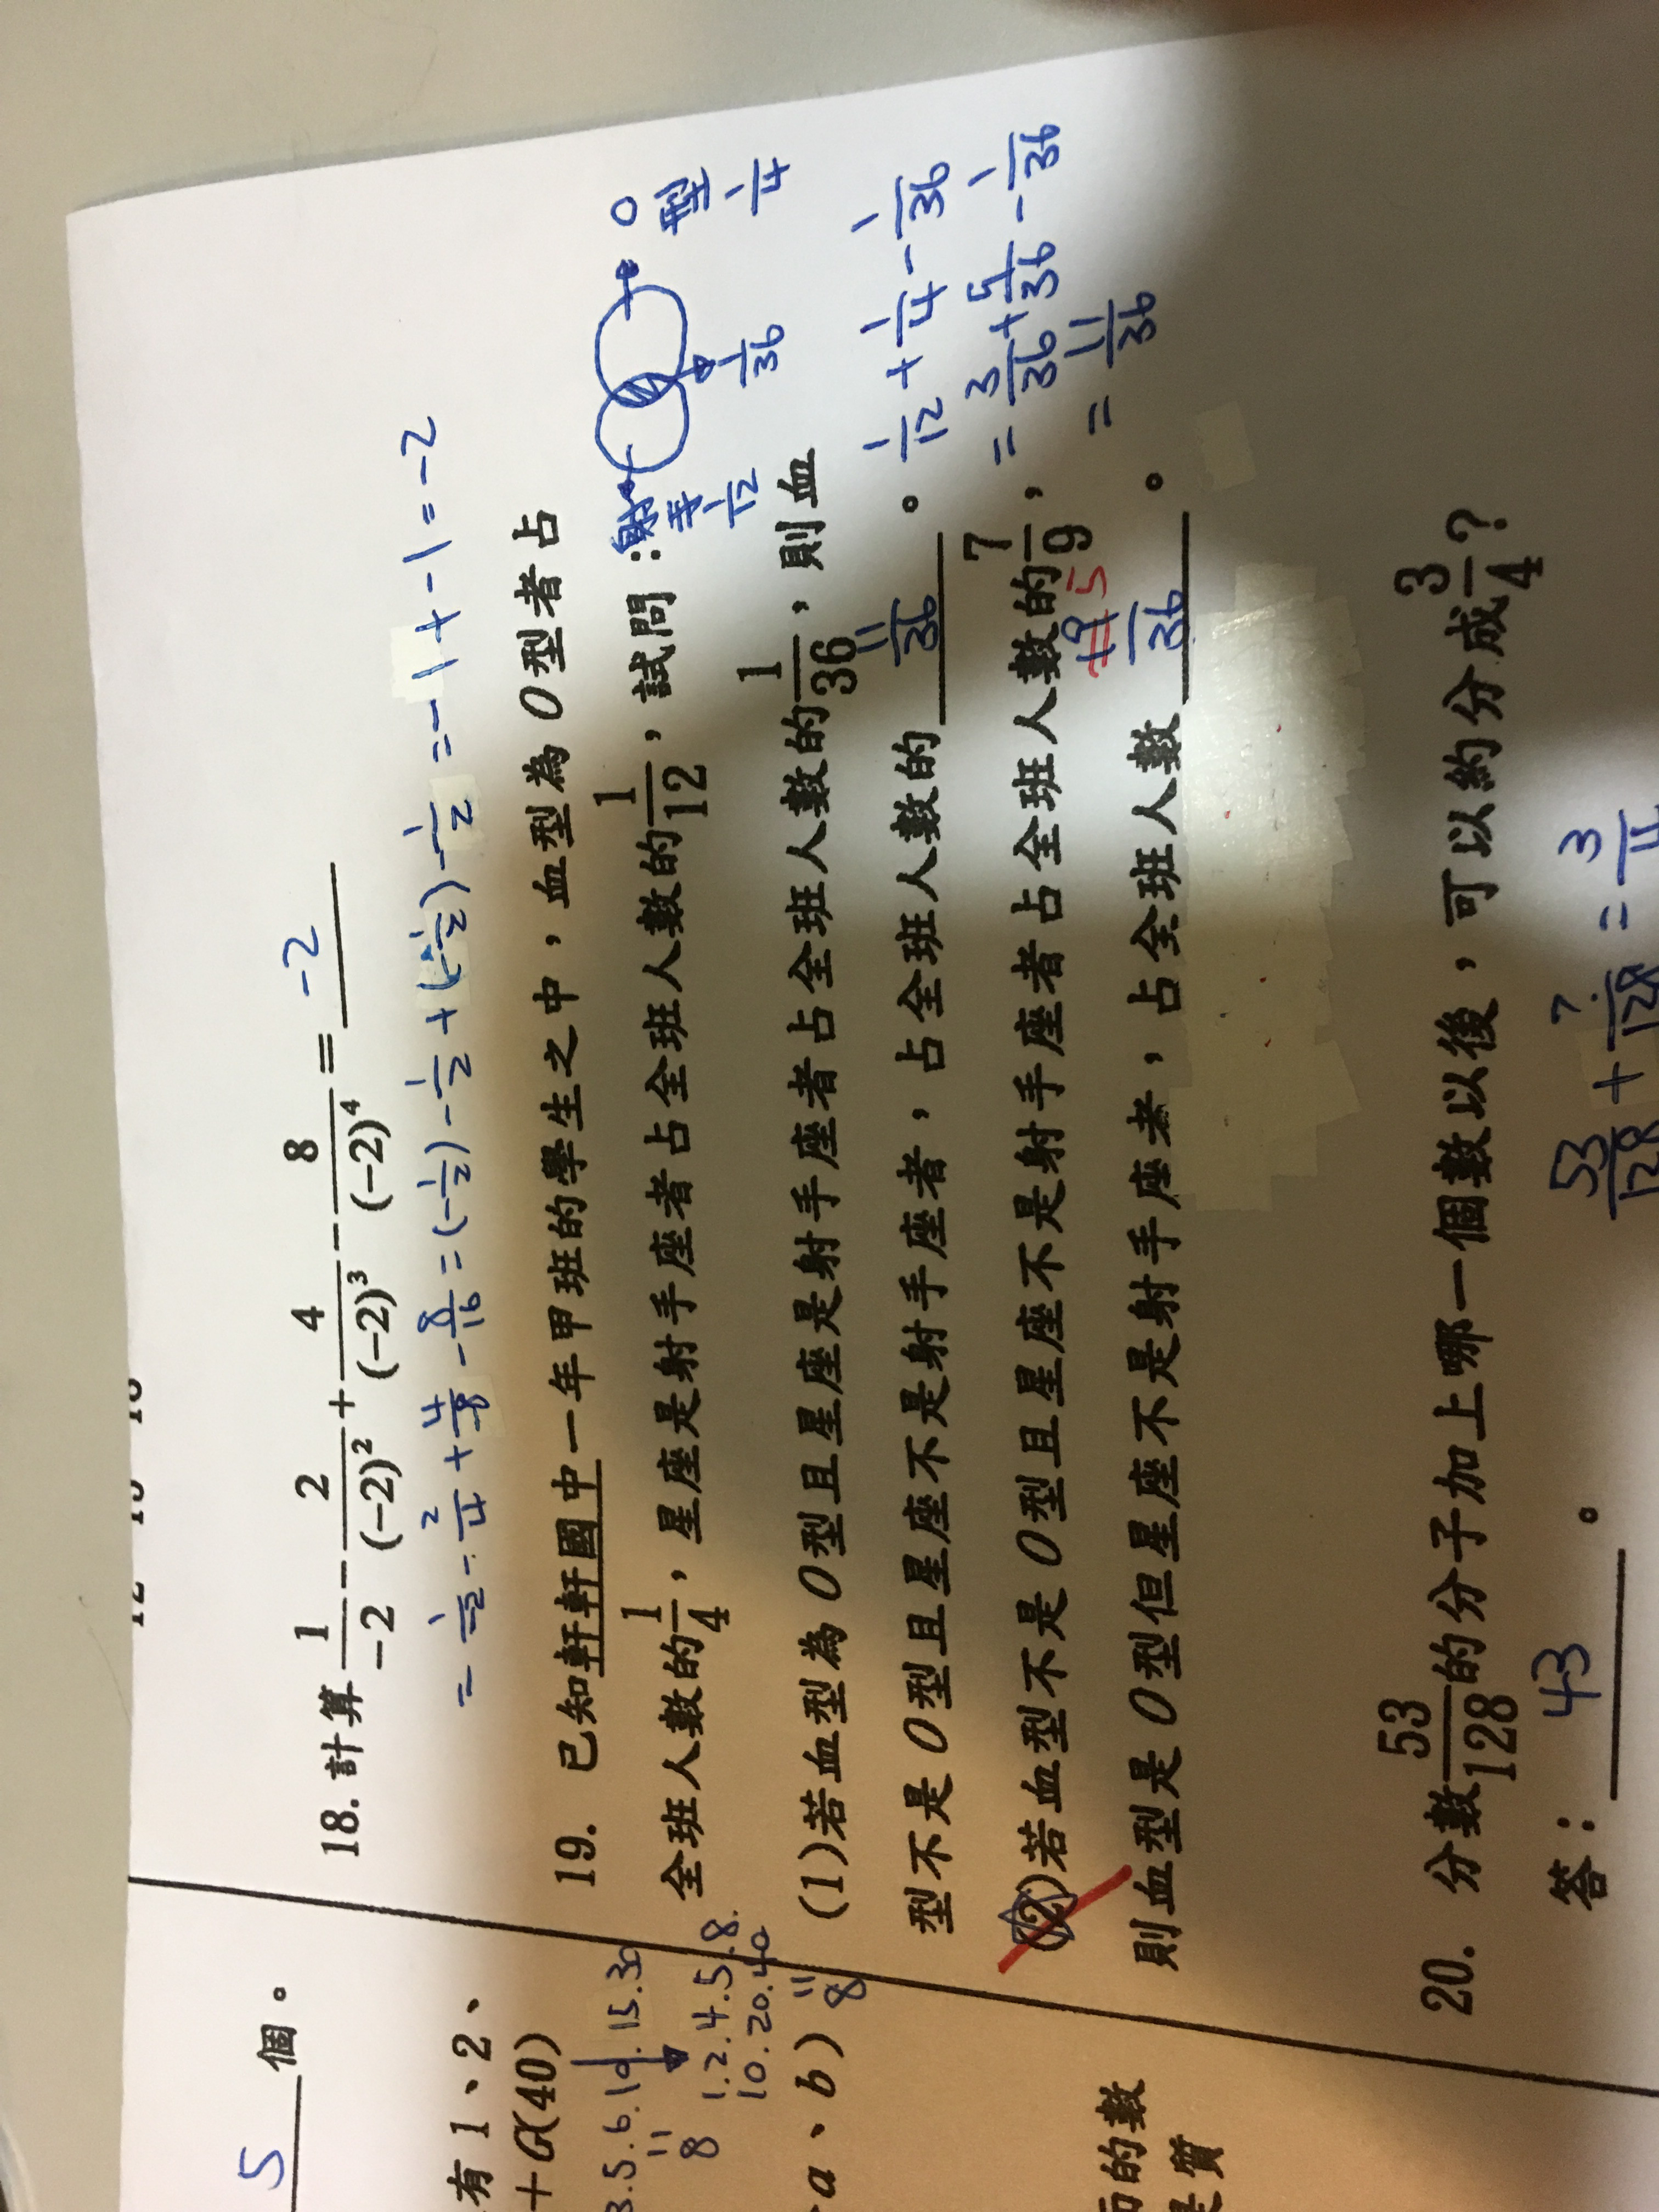 5 個。
有 1、2、
+G(40)
3.5.6.10.15.30
"
8
1.2.4.5.8.
10.20.40
"
8
a、b)
的數
質
18. 計算 1/-2 - 2/(-2)² + 4/(-2)³ - 8/(-2)⁴ = -2
= 1/-2 - 2/4 + 4/-8 - 8/16 = (-1/2) - 1/2 + (-1/2) - 1/2 = -1 + -1 = -2
19. 已知軒軒國中一年甲班的學生之中,血型為 O 型者占
全班人數的1/4,星座是射手座者占全班人數的1/12,試問:
射手 1/12
1/36
O型 1/4
(1)若血型為 O 型且星座是射手座者占全班人數的1/36,則血
型不是 O 型且星座不是射手座者,占全班人數的 11/36 。
1/12 + 1/4 - 1/36
= 3/36 + 9/36 - 1/36
= 11/36
(2)若血型不是 O 型且星座不是射手座者占全班人數的7/9,
則血型是 O 型但星座不是射手座者,占全班人數 5/36 。
20. 分數53/128的分子加上哪一個數以後,可以約分成3/4?
答: 43 。
53/128 + ?/128 = 3/4